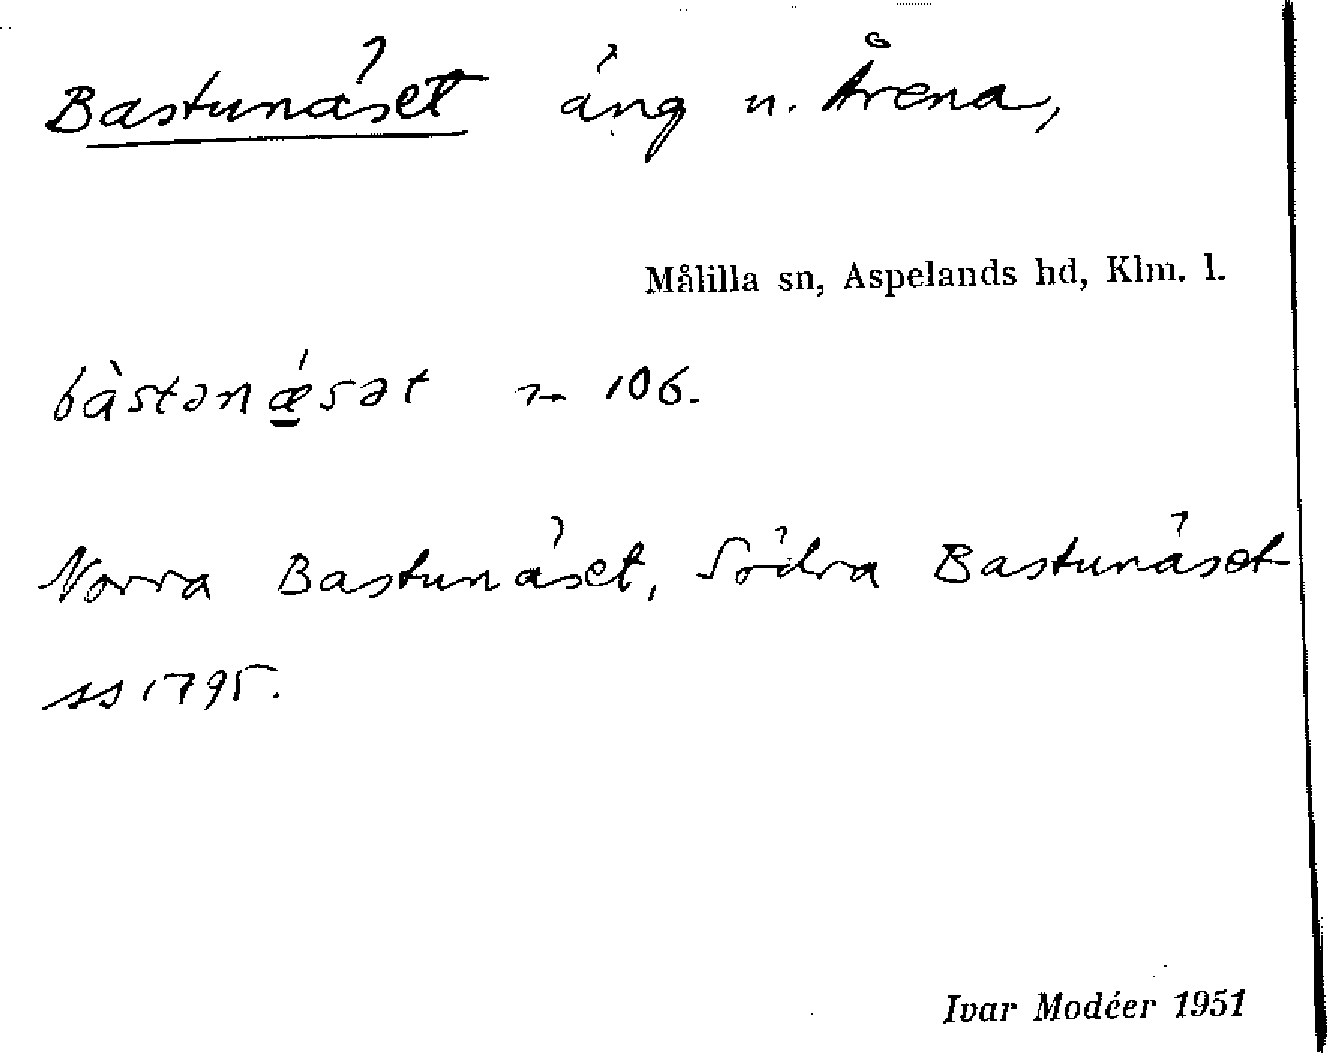 Bastunäset äng u. Årena,
Målilla sn, Aspelands hd, Klm. l.
bàstənǽsət 106.
Norra Bastunäset, Södra Bastunäset
ss 1795.
Ivar Modéer 1951